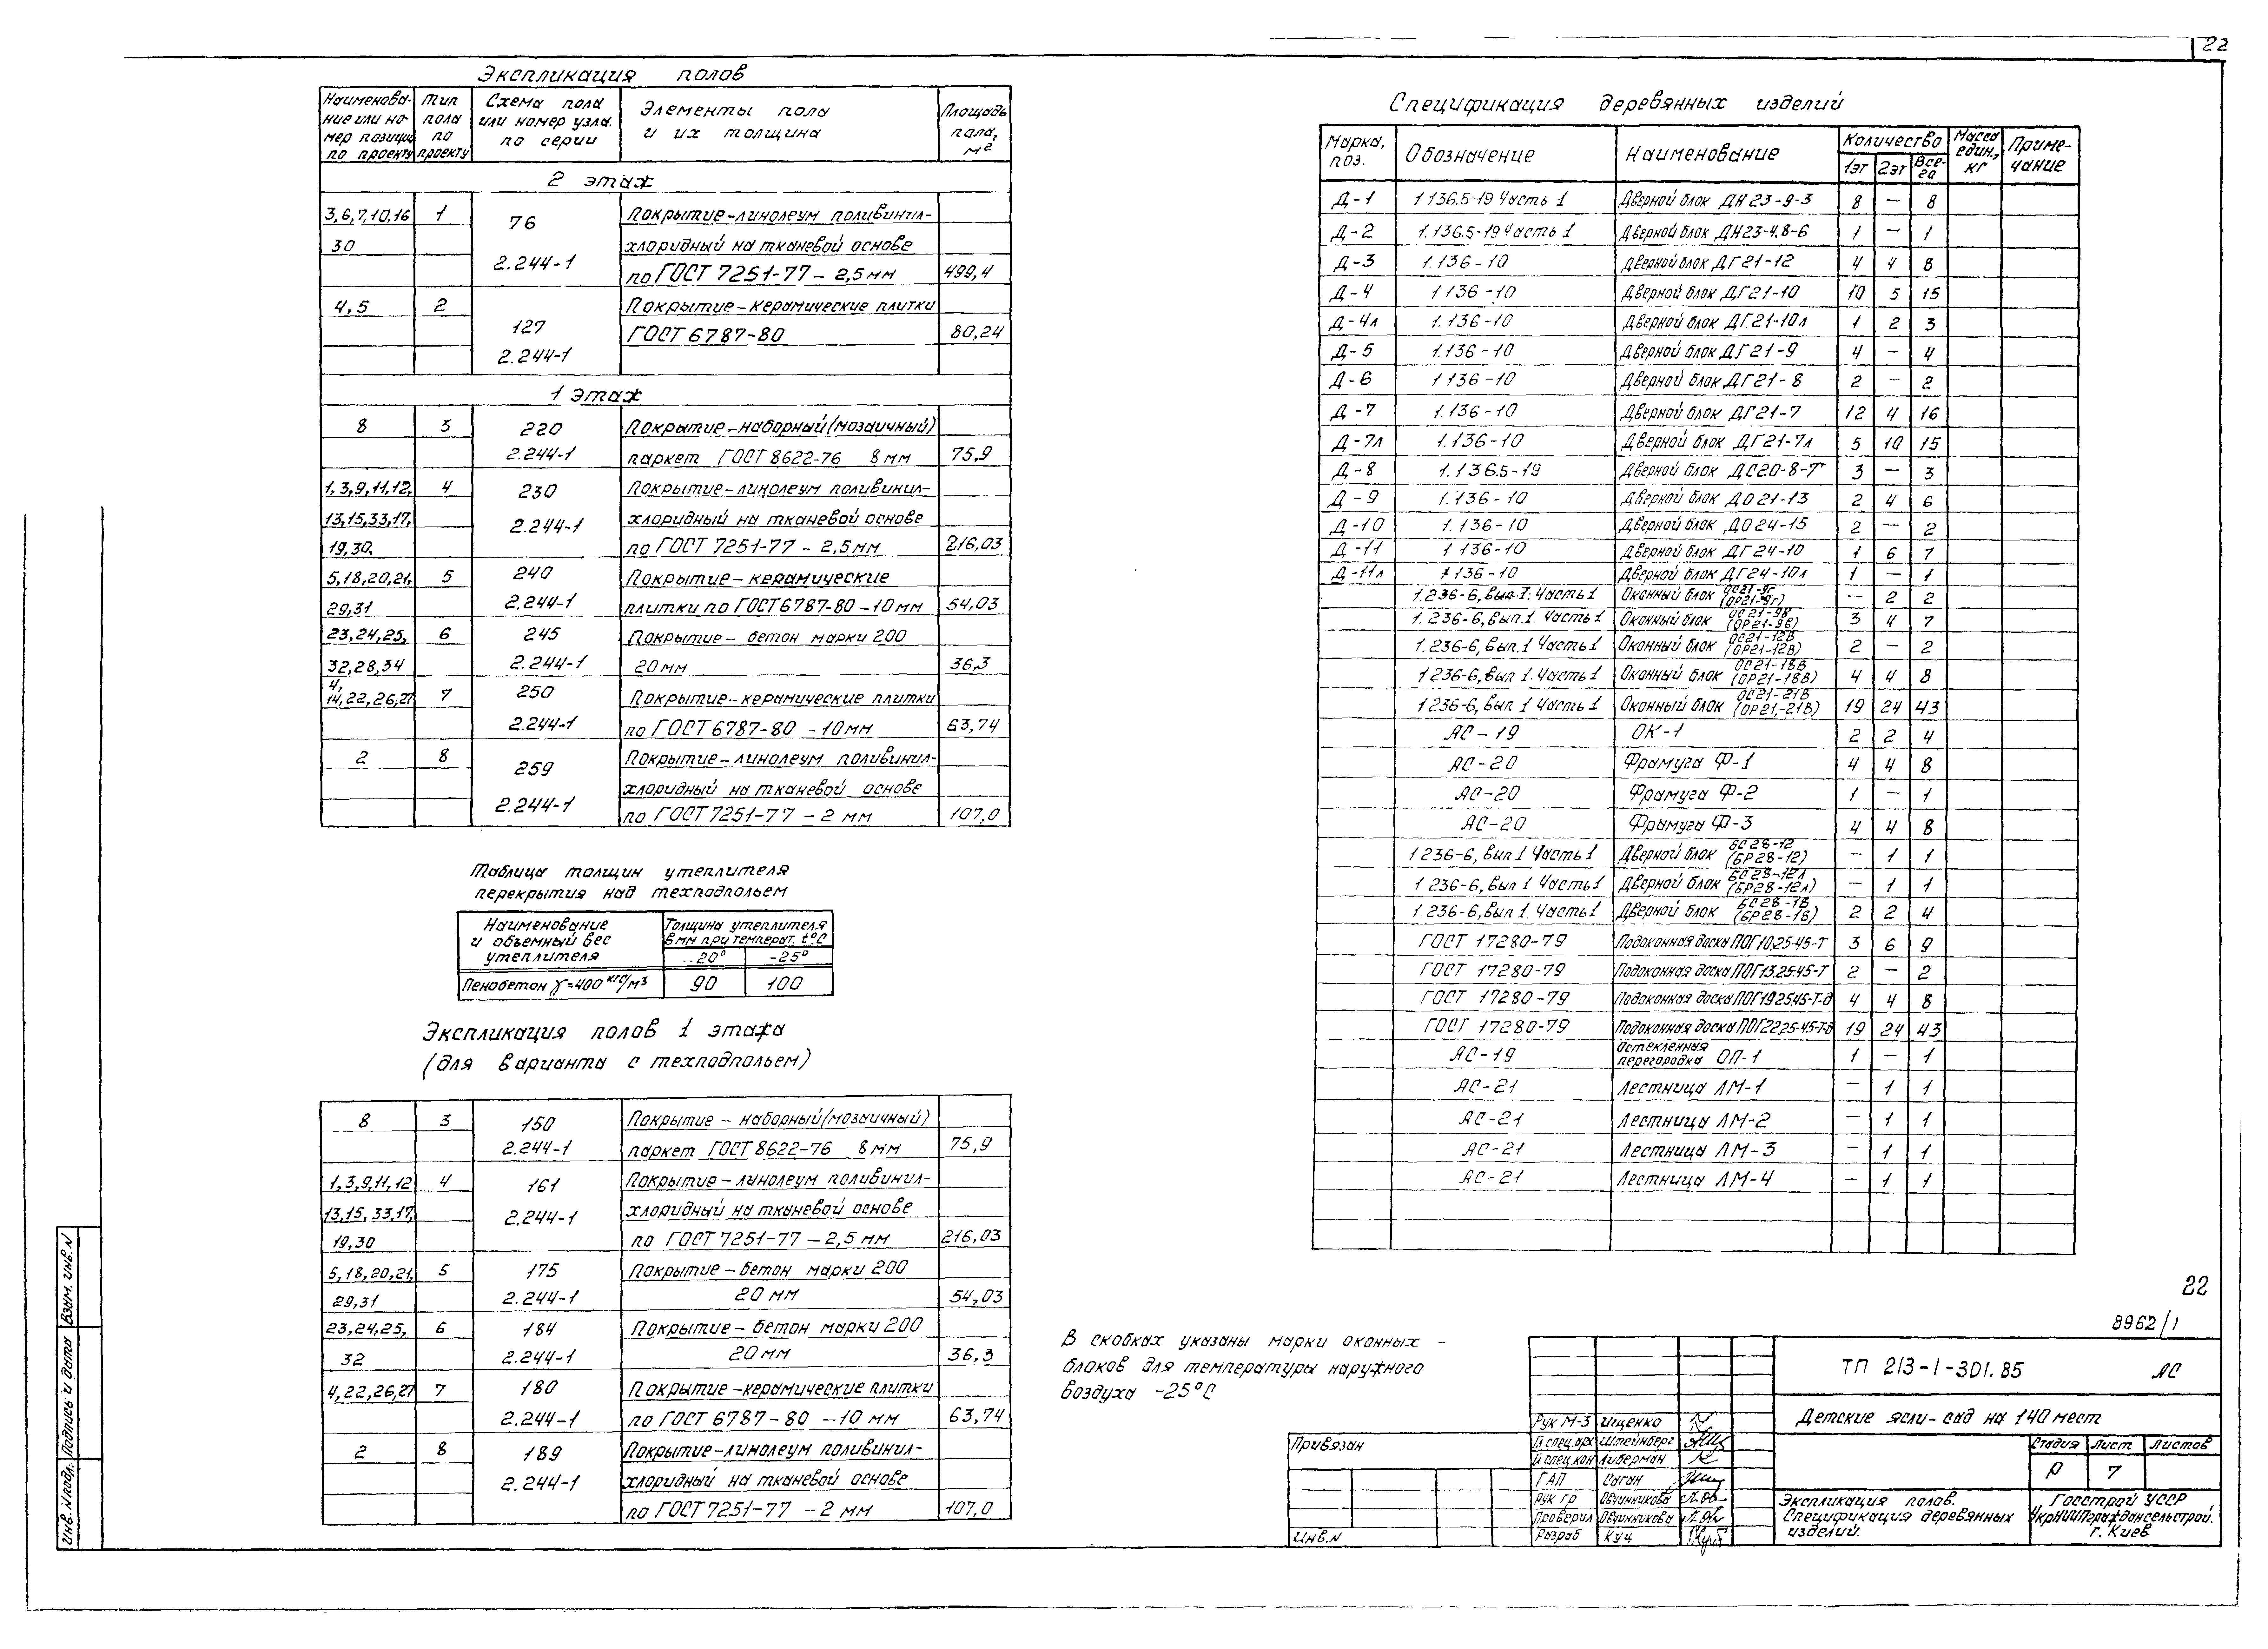 22
Экспликация полов
Наименова- Тип Схема пола Элементы пола Площадь
ние или но- пола или номер узла и их толщина пола,
мер позиции по по серии м2
по проекту проекту
2 этаж
3,6,7,10,16 1 76 Покрытие-линолеум поливинил-
30 хлоридный на тканевой основе
2.244-1 по ГОСТ 7251-77 - 2,5 мм 499,4
4,5 2 Покрытие-керамические плитки
127 ГОСТ 6787-80 80,24
2.244-1
1 этаж
8 3 220 Покрытие-наборный (мозаичный)
2.244-1 паркет ГОСТ 8622-76 8 мм 75,9
1,3,9,11,12, 4 230 Покрытие-линолеум поливинил-
13,15,33,17, 2.244-1 хлоридный на тканевой основе
19,30, по ГОСТ 7251-77 - 2,5 мм 216,03
5,18,20,21, 5 240 Покрытие-керамические
29,31 2.244-1 плитки по ГОСТ 6787-80-10 мм 54,03
23,24,25, 6 245 Покрытие- бетон марки 200
32,28,34 2.244-1 20 мм 36,3
4,
14,22,26,27 7 250 Покрытие-керамические плитки
2.244-1 по ГОСТ 6787-80 -10 мм 63,74
2 8 259 Покрытие-линолеум поливинил-
хлоридный на тканевой основе
2.244-1 по ГОСТ 7251-77 - 2 мм 107,0
Таблица толщин утеплителя
перекрытия над техподпольем
Наименование Толщина утеплителя
и объемный вес в мм при температ. t°C
утеплителя -20° -25°
Пенобетон γ=400 кгс/м3 90 100
Экспликация полов 1 этажа
(для варианта с техподпольем)
8 3 150 Покрытие - наборный (мозаичный)
2.244-1 паркет ГОСТ 8622-76 8 мм 75,9
1,3,9,11,12 4 161 Покрытие-линолеум поливинил-
13,15,33,17, 2.244-1 хлоридный на тканевой основе
19,30 по ГОСТ 7251-77 - 2,5 мм 216,03
5,18,20,21, 5 175 Покрытие-бетон марки 200
29,31 2.244-1 20 мм 54,03
23,24,25, 6 184 Покрытие- бетон марки 200
32 2.244-1 20 мм 36,3
4,22,26,27 7 180 Покрытие-керамические плитки
2.244-1 по ГОСТ 6787-80 -10 мм 63,74
2 8 189 Покрытие-линолеум поливинил-
2.244-1 хлоридный на тканевой основе
по ГОСТ 7251-77 - 2 мм 107,0
Спецификация деревянных изделий
Марка, поз. Обозначение Наименование Количество Масса един., кг Приме-чание
1эт 2эт Все-го
Д-1 1 136.5-19 Часть 1 Дверной блок ДН 23-9-3 8 - 8
Д-2 1.136.5-19 Часть 1 Дверной блок ДН23-4,8-6 1 - 1
Д-3 1.136-10 Дверной блок ДГ21-12 4 4 8
Д-4 1 136-10 Дверной блок ДГ21-10 10 5 15
Д-4л 1.136-10 Дверной блок ДГ.21-10л 1 2 3
Д-5 1.136-10 Дверной блок ДГ21-9 4 - 4
Д-6 1 136-10 Дверной блок ДГ21-8 2 - 2
Д-7 1.136-10 Дверной блок ДГ21-7 12 4 16
Д-7л 1.136-10 Дверной блок ДГ21-7л 5 10 15
Д-8 1.136.5-19 Дверной блок ДС20-8-Т 3 - 3
Д-9 1.136-10 Дверной блок ДО21-13 2 4 6
Д-10 1.136-10 Дверной блок ДО24-15 2 - 2
Д-11 1 136-10 Дверной блок ДГ24-10 1 6 7
Д-11л 1 136-10 Дверной блок ДГ24-10л 1 - 1
1.236-6, вып 1. Часть 1 Оконный блок ОС21-9г (ОР21-9г) - 2 2
1.236-6, вып.1. Часть 1 Оконный блок ОС21-9В (ОР21-9В) 3 4 7
1.236-6, вып.1 Часть 1 Оконный блок ОС21-12В (ОР21-12В) 2 - 2
1 236-6, вып 1. Часть 1 Оконный блок ОС21-18В (ОР21-18В) 4 4 8
1 236-6, вып 1 Часть 1 Оконный блок ОС21-21В (ОР21,-21В) 19 24 43
АС-19 ОК-1 2 2 4
АС-20 Фрамуга Ф-1 4 4 8
АС-20 Фрамуга Ф-2 1 - 1
АС-20 Фрамуга Ф-3 4 4 8
1 236-6, вып 1 Часть 1 Дверной блок БС28-12 (БР28-12) - 1 1
1 236-6, вып 1 Часть 1 Дверной блок БС28-12л (БР28-12л) - 1 1
1.236-6, вып 1. Часть 1 Дверной блок БС28-18 (БР28-18) 2 2 4
ГОСТ 17280-79 Подоконная доска ПОГ10,25-45-Т 3 6 9
ГОСТ 17280-79 Подоконная доска ПОГ13.25.45-Т 2 - 2
ГОСТ 17280-79 Подоконная доска ПОГ19.25.45-Т-д 4 4 8
ГОСТ 17280-79 Подоконная доска ПОГ22,25-45-Т-д 19 24 43
АС-19 Остекленная перегородка ОП-1 1 - 1
АС-21 Лестница ЛМ-1 - 1 1
АС-21 Лестница ЛМ-2 - 1 1
АС-21 Лестница ЛМ-3 - 1 1
АС-21 Лестница ЛМ-4 - 1 1
В скобках указаны марки оконных -
блоков для температуры наружного
воздуха -25°С
22
8962/1
ТП 213-1-301.85 АС
Детские ясли-сад на 140 мест
Стадия Лист Листов
Р 7
Экспликация полов.
Спецификация деревянных
изделий.
Госстрой УССР
УкрНИИПграждансельстрой.
г. Киев
Рук М-3 Ищенко
Гл спец.арх Штейнберг
Гл спец.кон Либерман
ГАП Саган
Рук гр Овчинникова
Проверил Овчинникова
Разраб Куц
Привязан
Инв.N
Инв. N подл. Подпись и дата Взам. инв. N